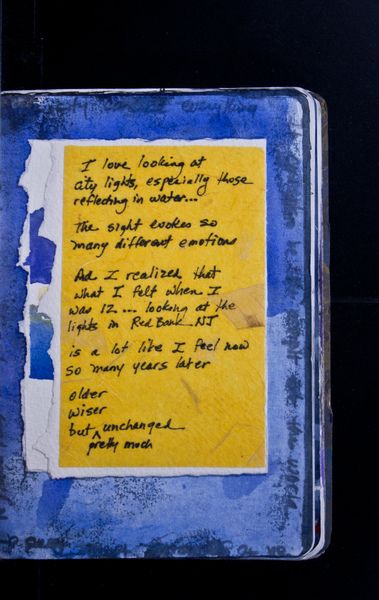 everything
I love looking at
city lights, especially those
reflecting in water...
The sight evokes so
many different emotions
Ad I realized that
what I felt when I
was 12 ... looking at the
lights in Red Bank NJ
is a lot like I feel now
so many years later
older
wiser
but ^ unchanged
pretty much